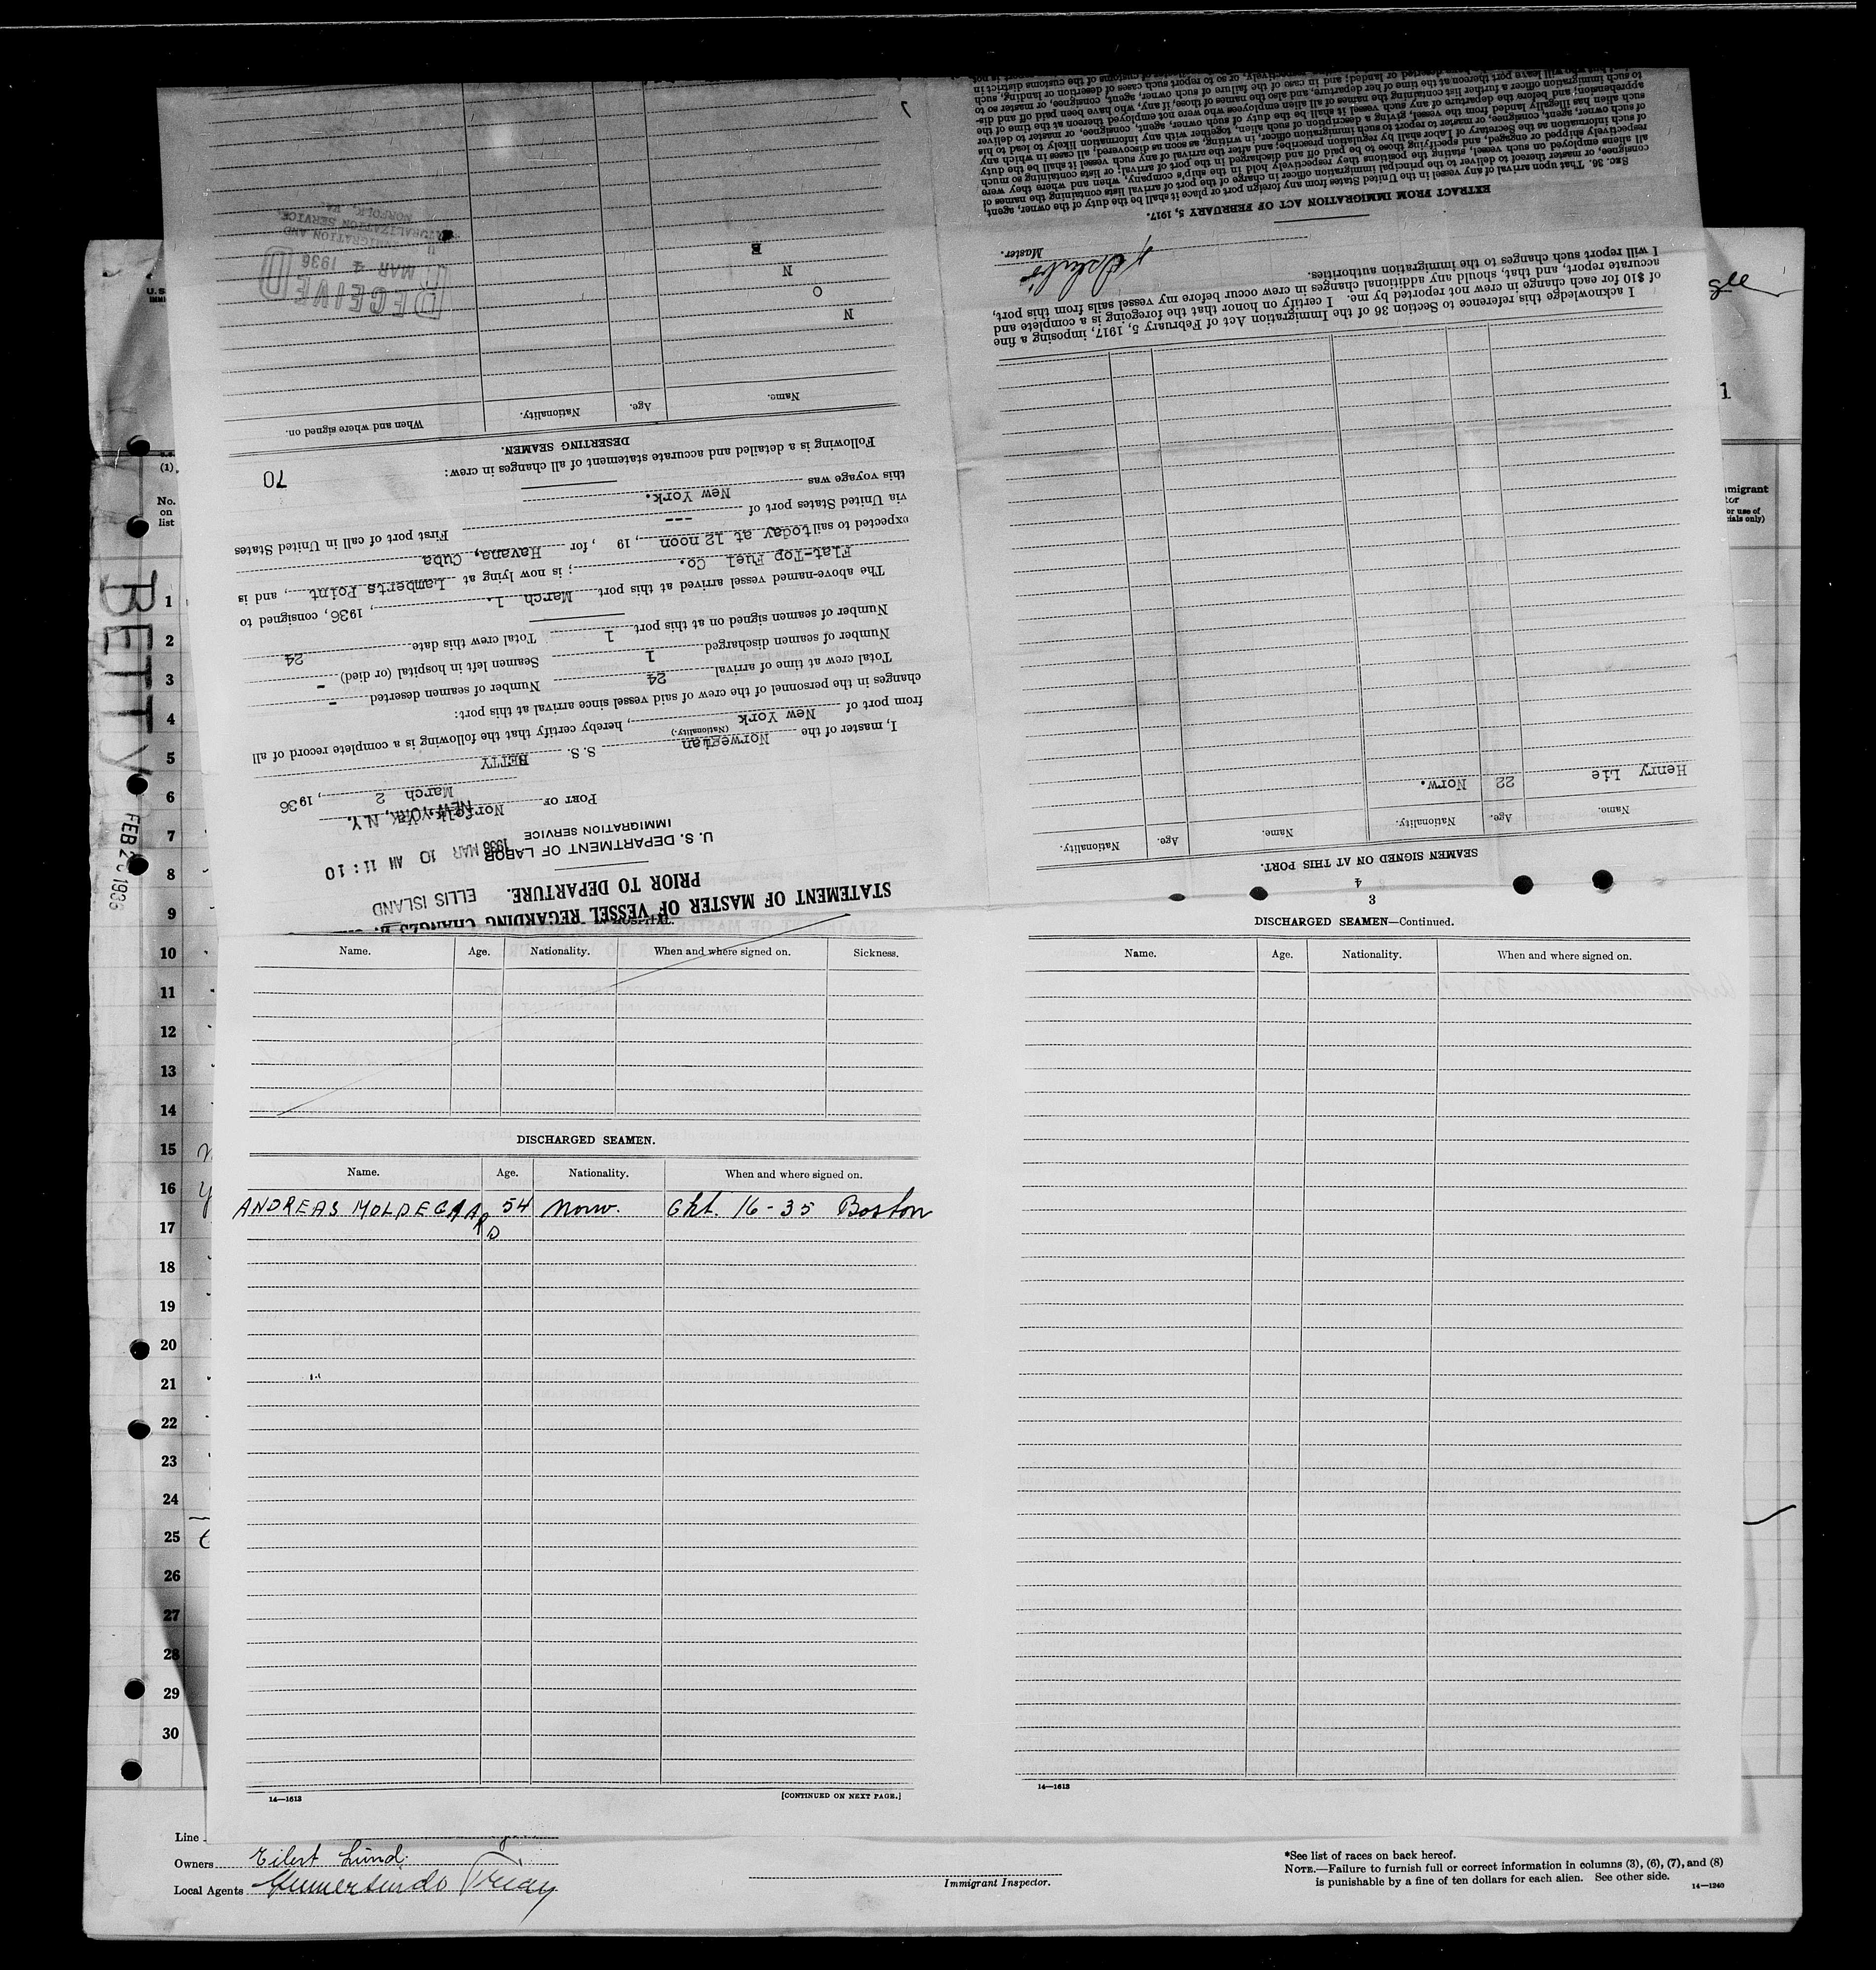 STATEMENT OF MASTER OF VESSEL REGARDING CHANGES
PRIOR TO DEPARTURE.
ELLIS ISLAND
U. S. DEPARTMENT OF LABOR
IMMIGRATION SERVICE
1936 MAR 10 AM 11:10
PORT OF Norfolk, Va. NEW YORK, N.Y.
March 2, 1936
I, master of the Norwegian S. S. BETTY
(Nationality.)
from port of New York, hereby certify that the following is a complete record of all
changes in the personnel of the crew of said vessel since arrival at this port:
Total crew at time of arrival 24 Number of seamen deserted -
Number of seamen discharged 1 Seamen left in hospital (or died) -
Number of seamen signed on at this port 1 Total crew this date 24
The above-named vessel arrived at this port March 1., 1936, consigned to
Flat-Top Fuel Co.; is now lying at Lamberts Point, and is
expected to sail today at 12 noon, 19 , for Havana, Cuba
via United States port of --- First port of call in United States
this voyage was New York.
Following is a detailed and accurate statement of all changes in crew:
70
DESERTING SEAMEN.
Name. Age. Nationality. When and where signed on.
N
O
N
E
RECEIVED
MAR 4 1936
IMMIGRATION AND
NATURALIZATION SERVICE
NORFOLK, VA.
4
SEAMEN SIGNED ON AT THIS PORT.
Name. Age. Nationality. Name. Age. Nationality.
Henry Lie 22 Norw.
I acknowledge this reference to Section 36 of the Immigration Act of February 5, 1917, imposing a fine
of $10 for each change in crew not reported by me. I certify on honor that the foregoing is a complete and
accurate report, and that, should any additional changes in crew occur before my vessel sails from this port,
I will report such changes to the immigration authorities.
Master.
EXTRACT FROM IMMIGRATION ACT OF FEBRUARY 5, 1917.
SEC. 36. That upon arrival of any vessel in the United States from any foreign port or place it shall be the duty of the owner, agent,
consignee, or master thereof to deliver to the principal immigration officer in charge of the port of arrival lists containing the names of
all aliens employed on such vessel, stating the positions they respectively hold in the ship's company, when and where they were
respectively shipped or engaged, and specifying those to be paid off and discharged in the port of arrival; or lists containing so much
of such information as the Secretary of Labor shall by regulation prescribe; and after the arrival of any such vessel it shall be the duty
of such owner, agent, consignee, or master to report to such immigration officer, in writing, as soon as discovered, all cases in which any
such alien has illegally landed from the vessel, giving a description of such alien, together with any information likely to lead to his
apprehension; and before the departure of any such vessel it shall be the duty of such owner, agent, consignee, or master to deliver
to such immigration officer a further list containing the names of all alien employees who were not employed thereon at the time of the
3
IN HOSPITAL.
Name. Age. Nationality. When and where signed on. Sickness.
DISCHARGED SEAMEN.
Name. Age. Nationality. When and where signed on.
ANDREAS MOLDEGAARD 54 Norw. Okt. 16-35 Boston
14—1613 [CONTINUED ON NEXT PAGE.]
DISCHARGED SEAMEN—Continued.
Name. Age. Nationality. When and where signed on.
14—1613
BETTY
FEB 26 1936
(1)
No.
on
list
1
2
3
4
5
6
7
8
9
10
11
12
13
14
15
16
17
18
19
20
21
22
23
24
25
26
27
28
29
30
1
Line
Owners Eilert Lund.
Local Agents Gumersindo Triay
Immigrant Inspector.
*See list of races on back hereof.
NOTE.—Failure to furnish full or correct information in columns (3), (6), (7), and (8)
is punishable by a fine of ten dollars for each alien. See other side.
14—1240